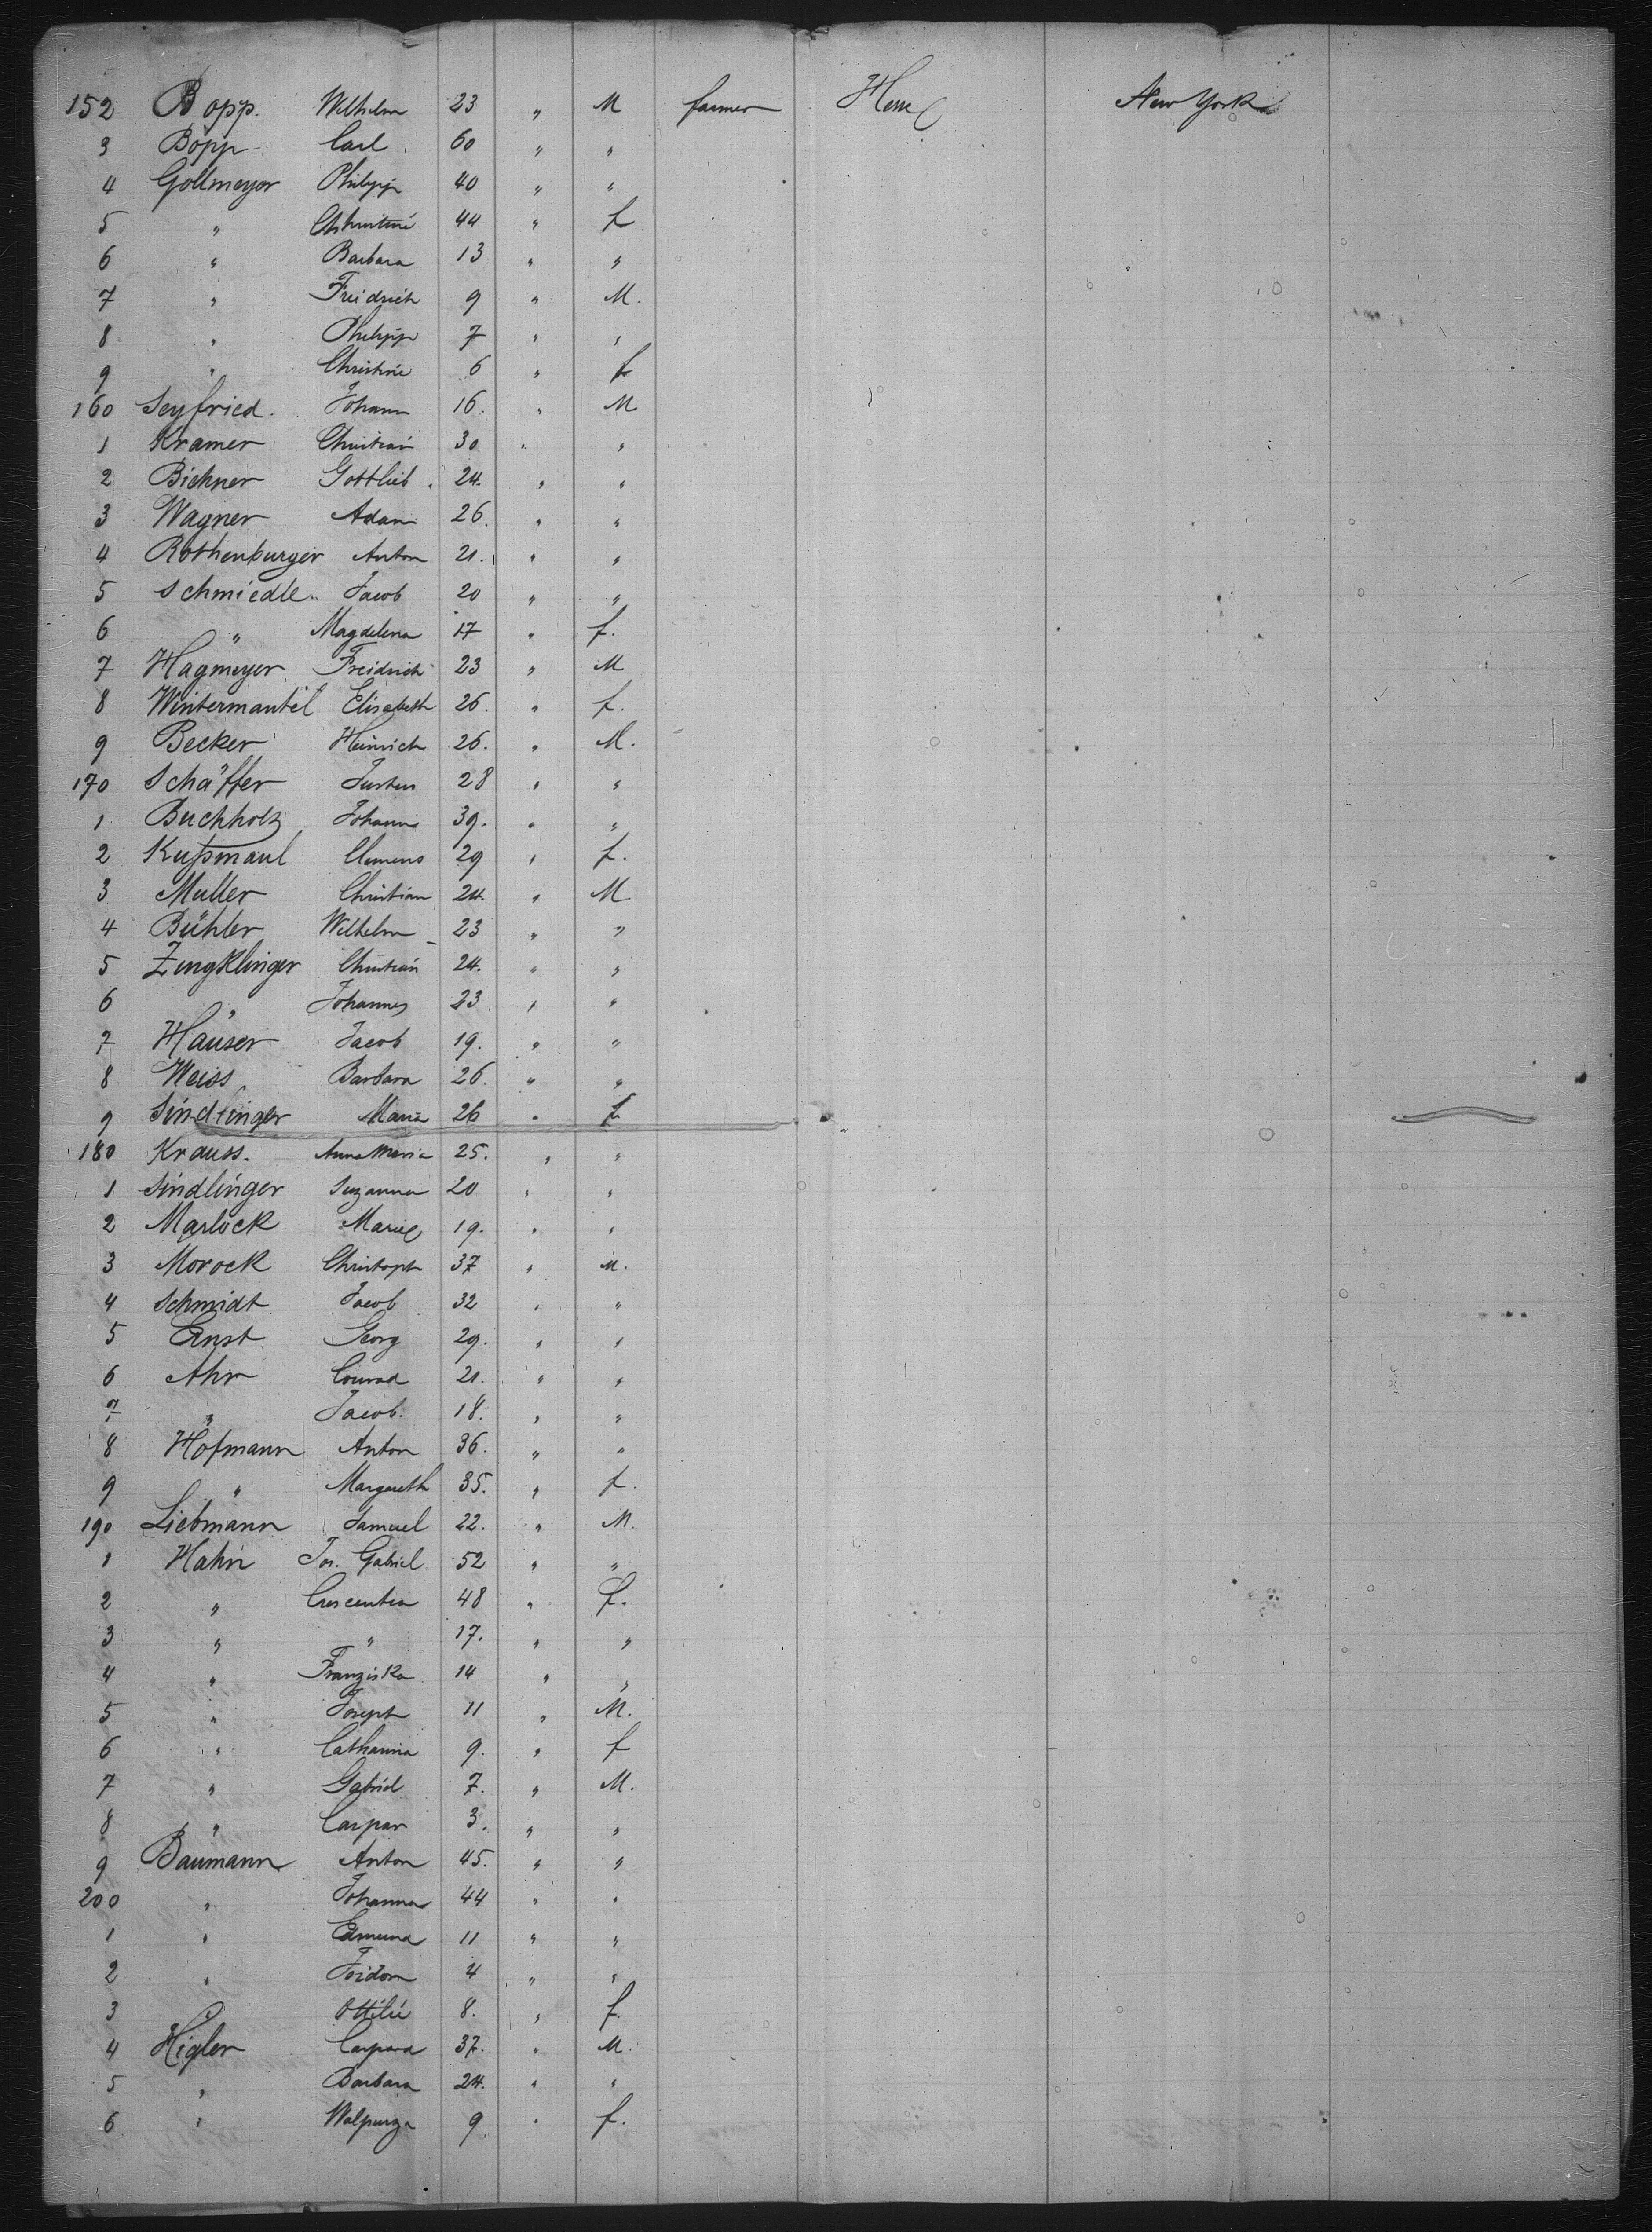 152 Bopp. Wilhelm 23 " M farmer New York
3 Bopp Carl 60 " "
4 Gollmeyer Philipp 40 " "
5 " Christine 44 " f
6 " Barbara 13 " "
7 " Freidrich 9 " M.
8 " Philipp 7 " "
9 " Christine 6 " f
160 Seyfried. Johann 16. " M
1 Kramer Christian 30 " "
2 Bichner Gottlieb. 24. " "
3 Wagner Adam 26. " "
4 Rothenburger Anton 21. " "
5 Schmiedle.. Jacob 20 " "
6 " Magdelena 17 " f.
7 Hagmeyer Freidrich 23 " M
8 Wintermantel Elisabeth 26. " f.
9 Becker Heinrich 26. " M.
170 Schäffer Justus 28 " "
1 Buchholz Johanns 39. " "
2 Kußmaul Clemens 29 " f.
3 Muller Christian 24. " M.
4 Bühler Wilhelm 23 " "
5 Zingklinger Christian 24. " "
6 " Johannes 23 " "
7 Haüser Jacob 19. " "
8 Weiss Barbara 26. " "
9 Sindlinger Maria 26 " f
180 Krauss. Anna Maria 25. " "
1 Sindlinger Suzanna 20 " "
2 Marlock Marie 19. " "
3 Morock Christoph 37 " M.
4 Schmidt Jacob 32 " "
5 Ernst Georg 29. " "
6 Ahr Conrad 21. " "
7 " Jacob. 18. " "
8 Hofmann Anton 36. " "
9 " Margareth 35. " f.
190 Liebmann Samuel 22. " M.
1 Hahn Jos. Gabriel 52 " "
2 " Crescentia 48 " f.
3 " " 17. " "
4 " Franziska 14 " "
5 " Joseph 11 " M.
6 " Catharina 9. " f
7 " Gabriel 7. " M.
8 " Caspar 3. " "
9 Baumann Anton 45. " "
200 " Johanna 44 " "
1 " Edmund 11 " "
2 " Isidor 4 " "
3 " Ottilie 8. " f.
4 Higler 37. " M.
5 " Barbara 24. " "
6 " Walpurga 9. " f.